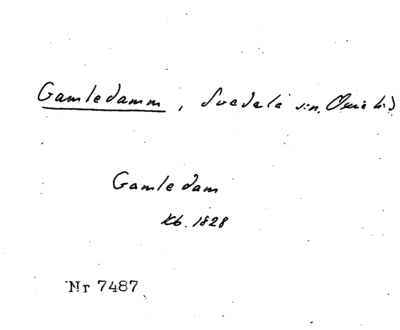 Gamledamm, Svedala sn. Oxie hd
Gamledam
Kb. 1828
Nr 7487